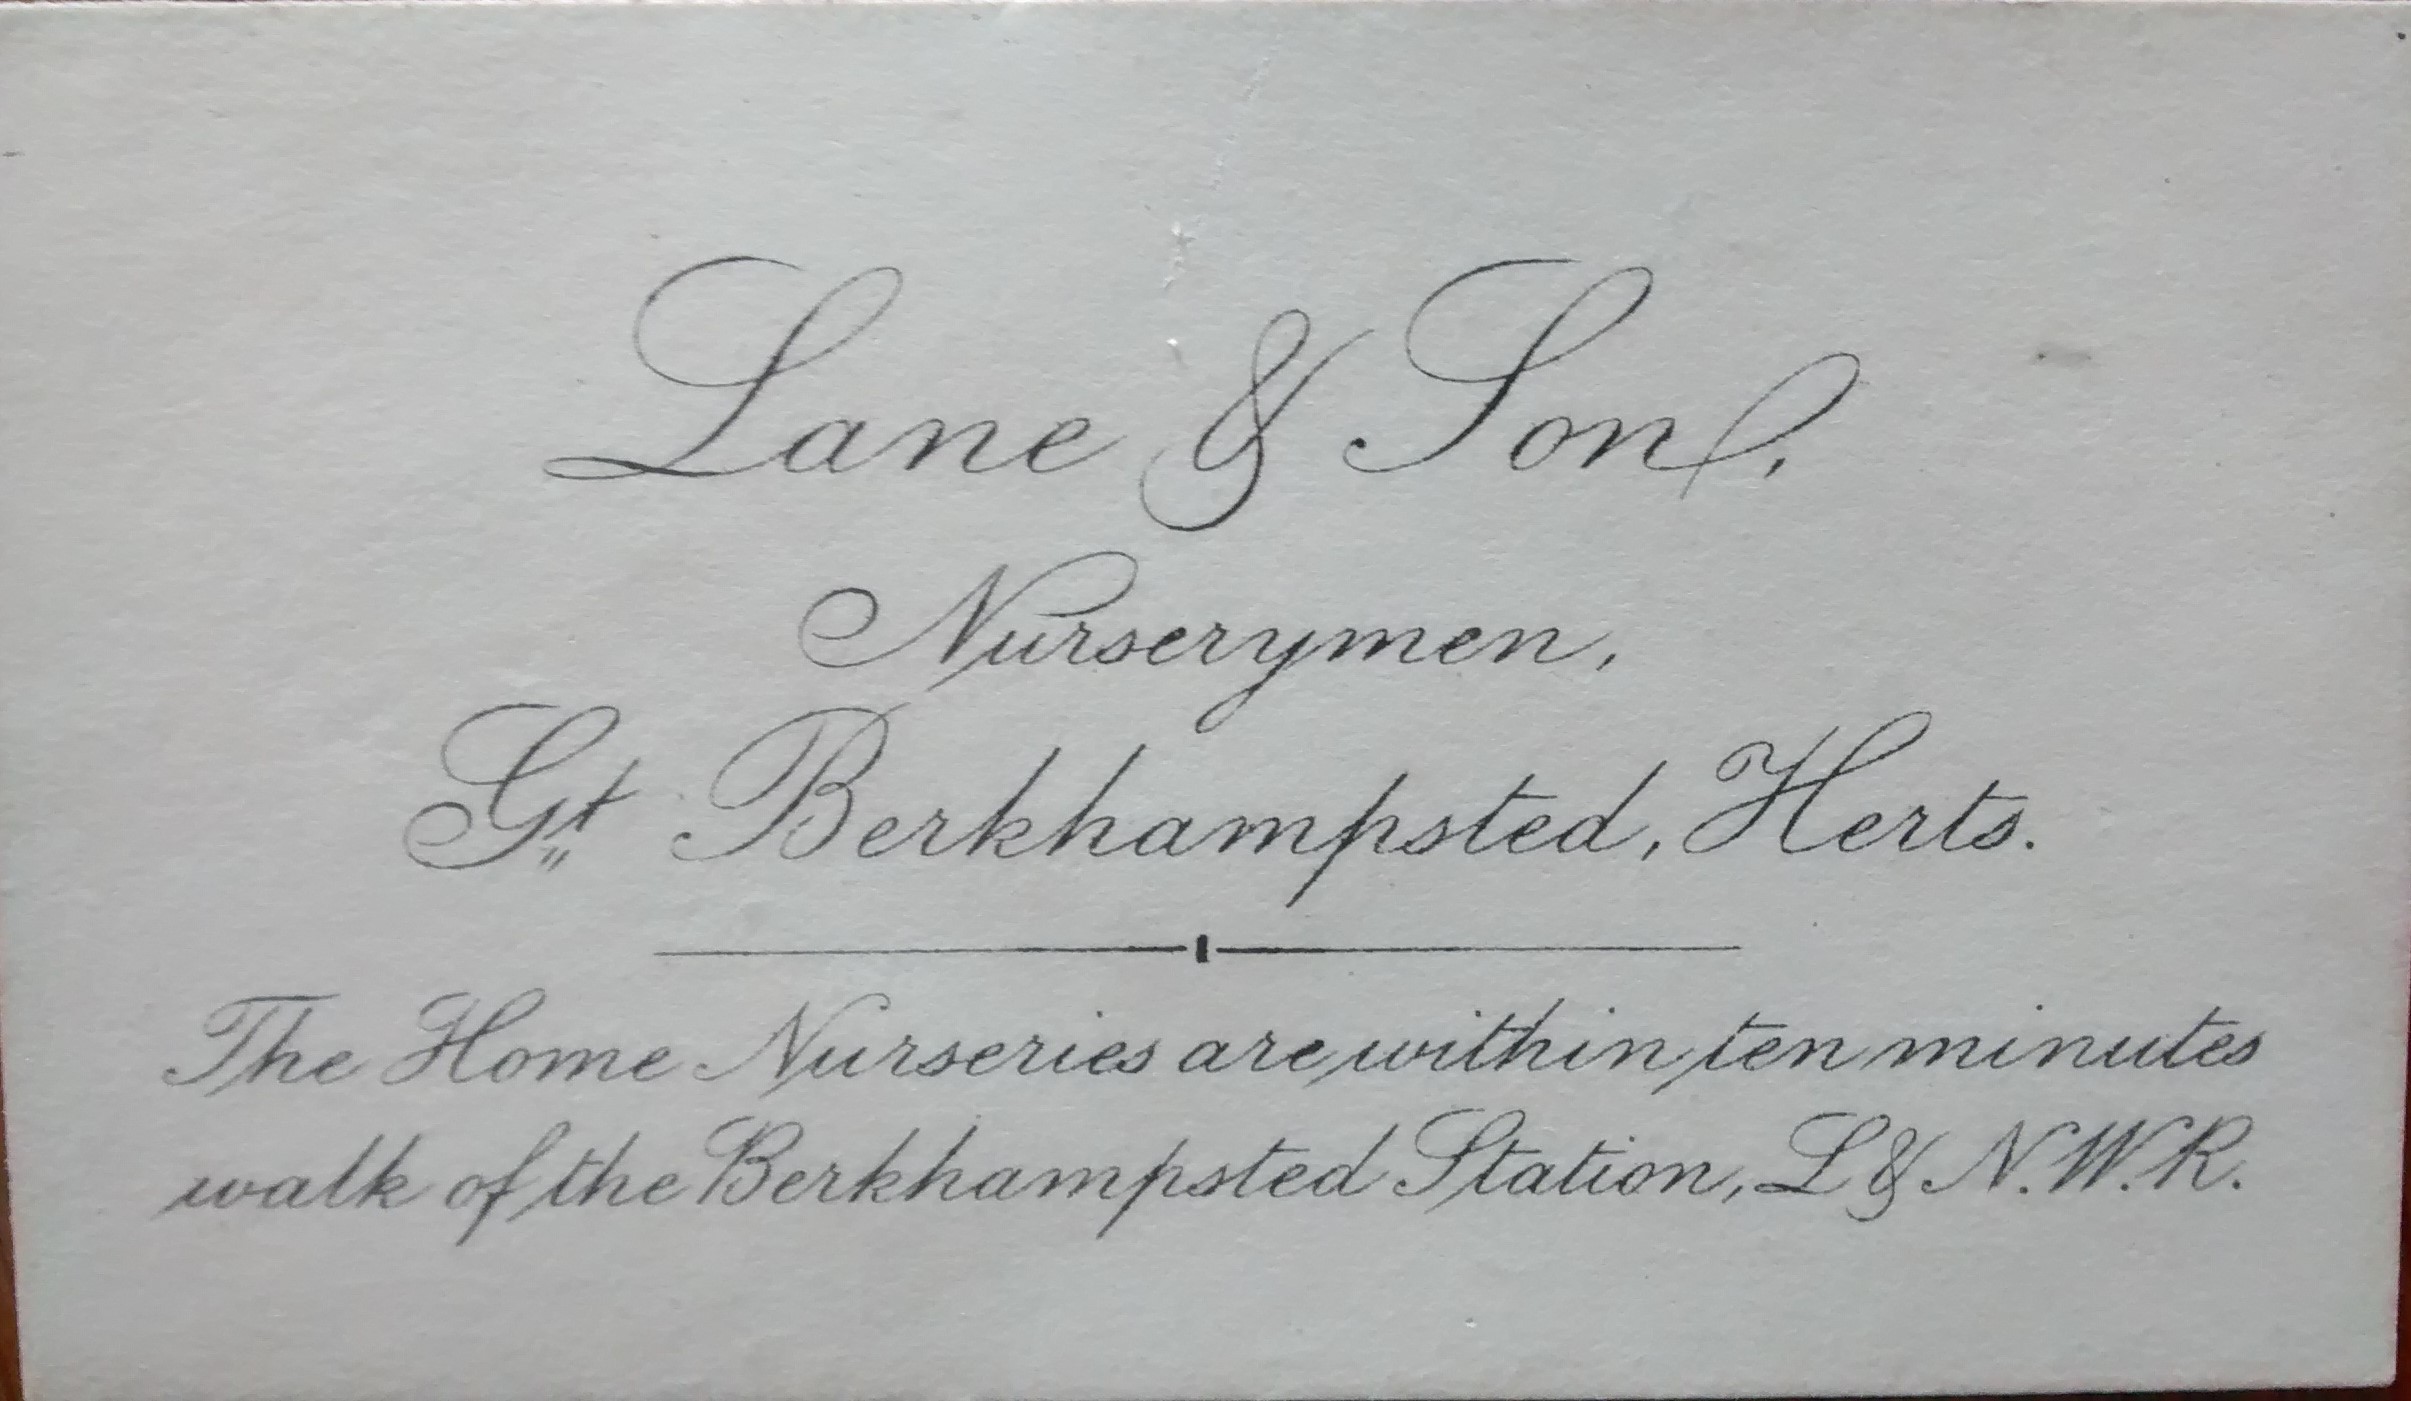 Lane & Son,
Nurserymen,
Gt. Berkhampsted, Herts.
The Home Nurseries are within ten minutes
walk of the Berkhampsted Station, L & N.W.R.